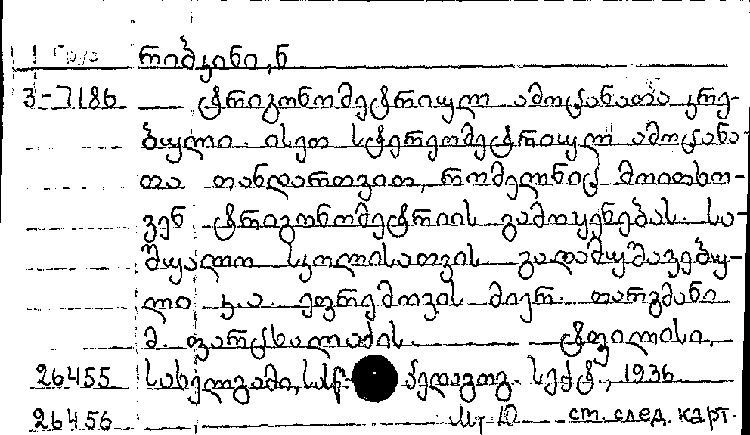 რიბკინი, ნ
3-7186 ტრიგონომეტრიულ ამოცანათა კრე-
ბული. ისეთ სტერეომეტრიულ ამოცანა-
თა თანდართვით, რომელნიც მოითხო-
ვენ ტრიგონომეტრიის გამოყენებას. სა-
შუალო სკოლისათვის გადამუშავებუ-
ლი ს.ა. ეფრემოვის მიერ. თარგმანი
მ. ფარცხალაძის. ტფილისი,
26455 სახელგამი, სასწ. პედაგოგ. სექტ., 1936
26456 ст. след. карт.